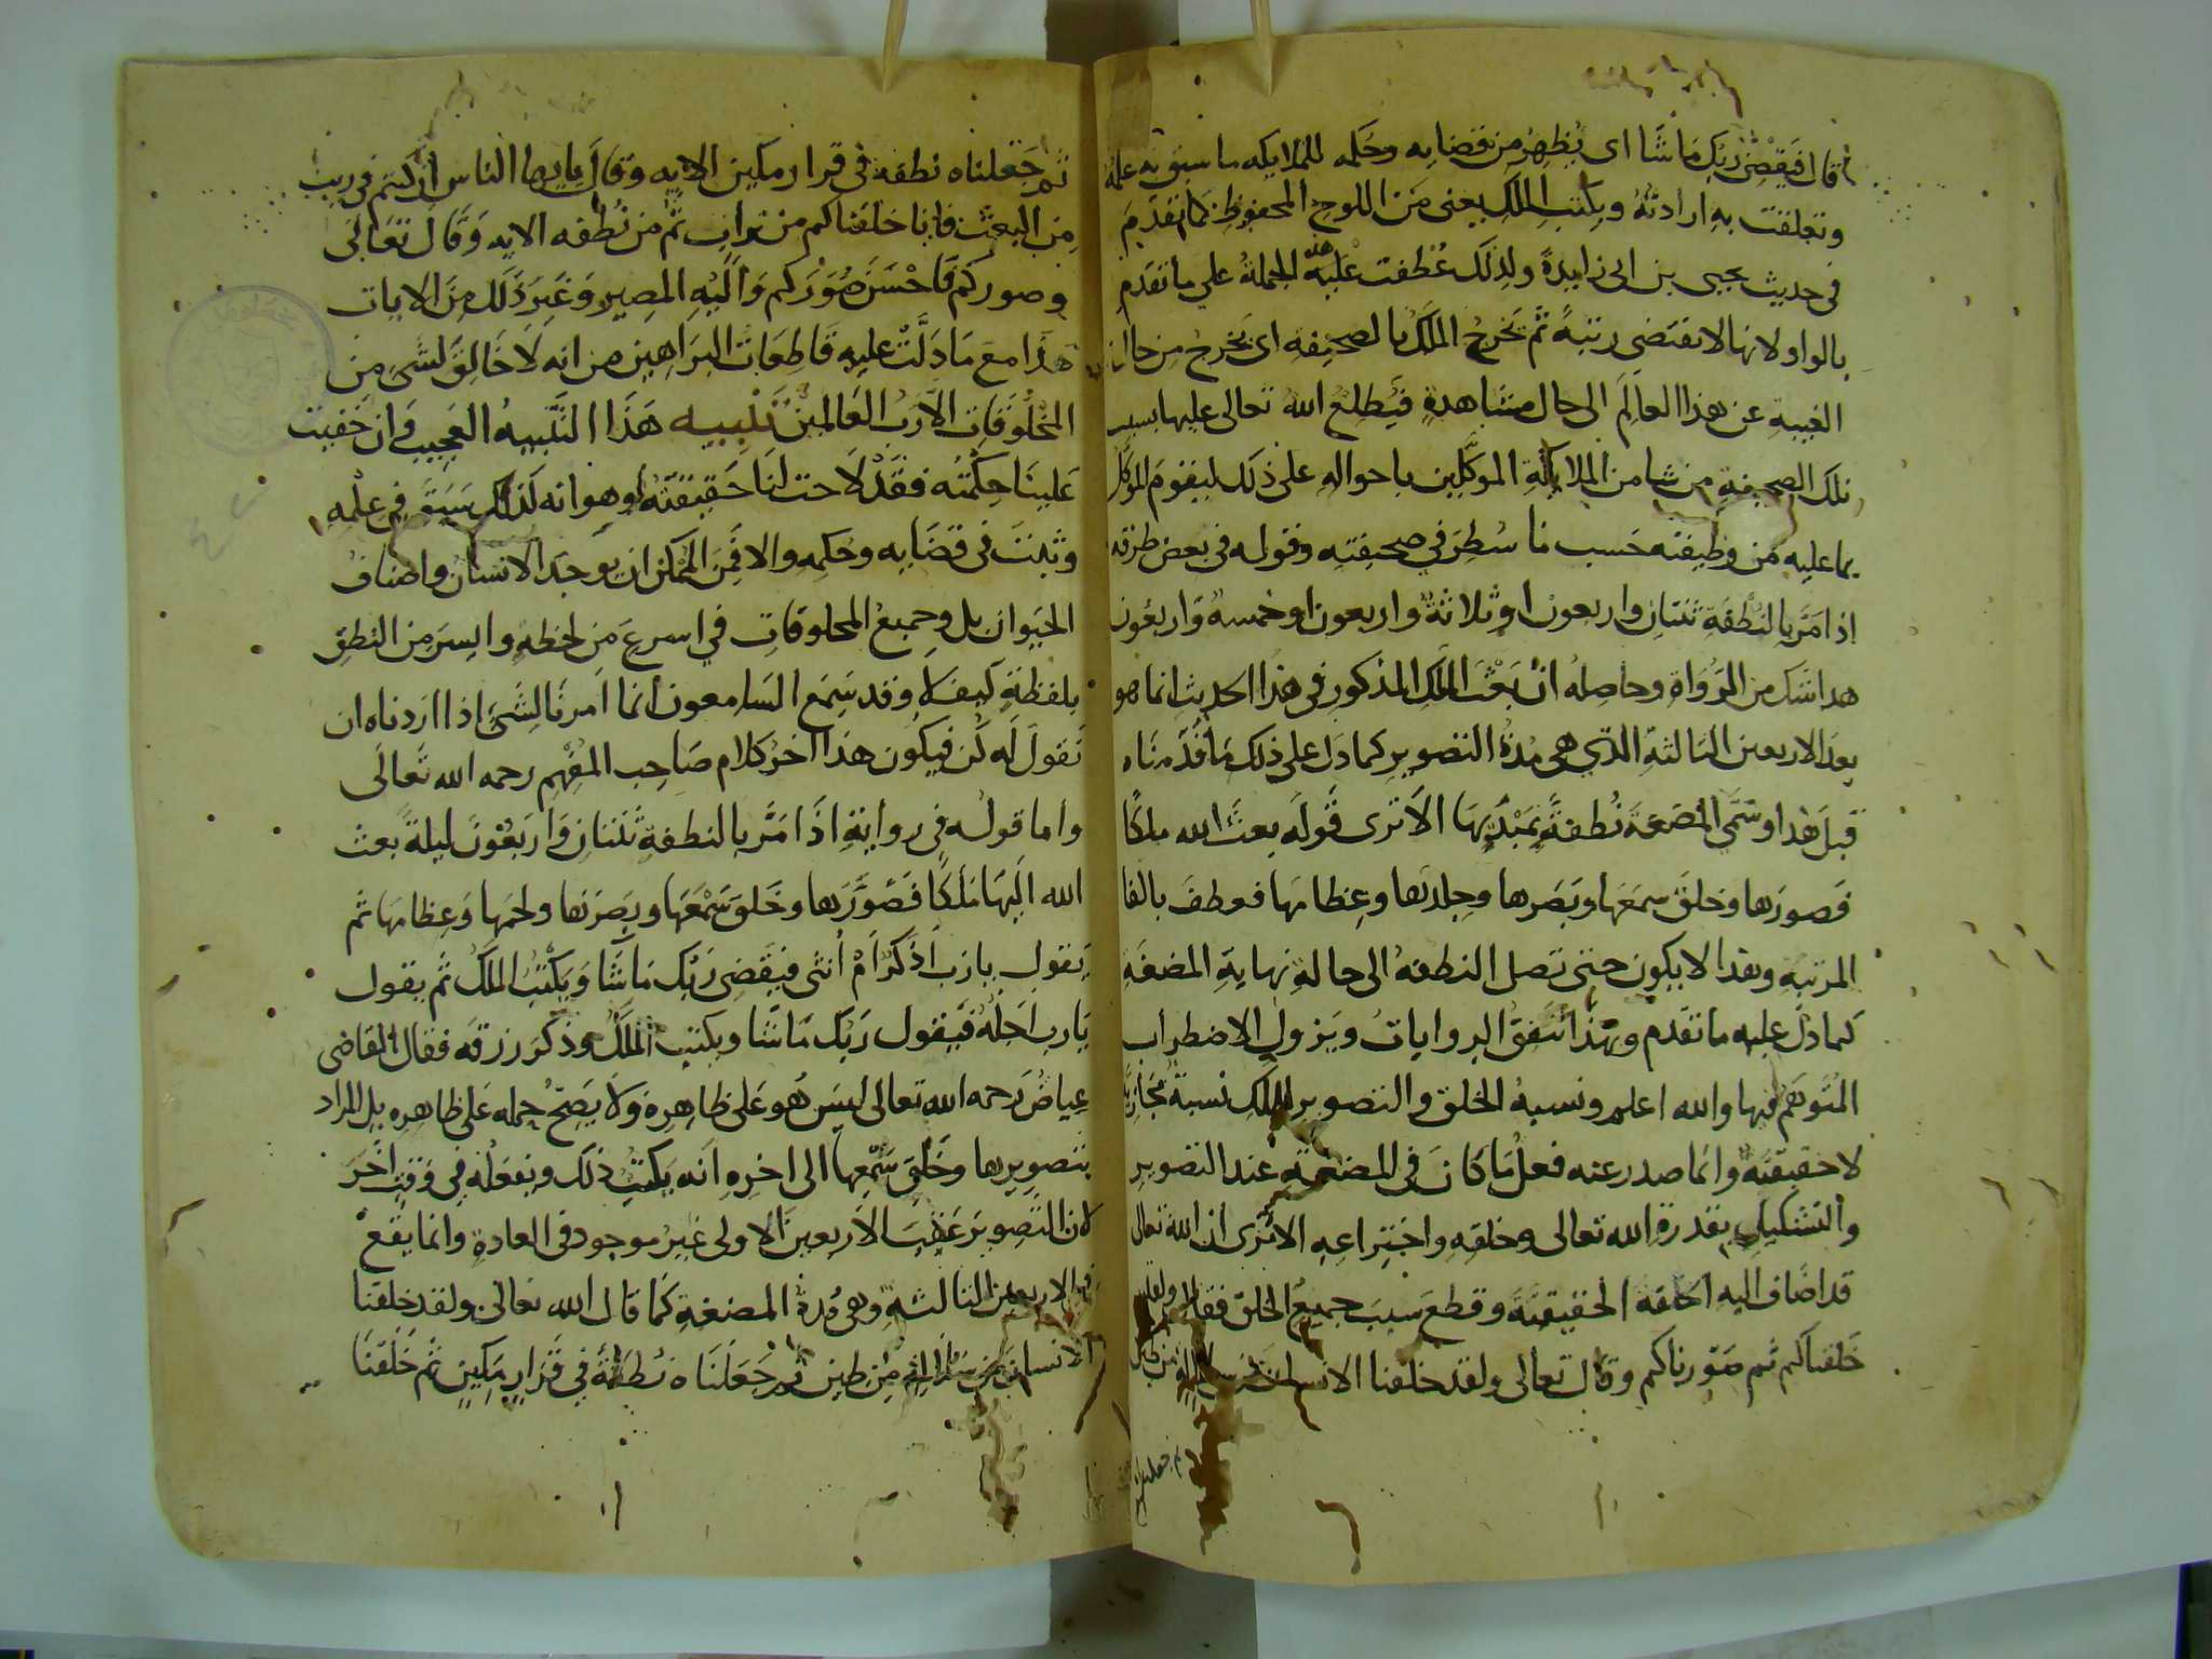 قال فيقضى ربك ما شا اى يظهر من قضايه وحكمه للملايكه ما سبق به علمه
وتعلقت به ارادته ويكتب الملك يعنى من اللوح المحفوظ كما تقدم
فى حديث يحيى بن ابى زايدة ولذلك عطفت عليه هذه الجملة على ما تقدم
بالواو لانها لا تقتضى رتبة ثم يخرج الملك بالصحيفه اى يخرج من حال
الغيبة عن هذا العالم الى حال مشاهدة فيطلع الله تعالى عليها بسبب
تلك الصحيفة من شا من الملايكة الموكلين باحواله على ذلك ليقوم الموكل
بما عليه من وظيفته حسب ما سطر فى صحيفته وقوله فى بعض طرقه
اذا مر بالنطفة ثنتان واربعون او ثلاثة واربعون او خمسة واربعون
هذا شك من الرواة وحاصله ان بعث الملك المذكور فى هذا الحديث انما هو
بعد الاربعين الثالثة التي هى مدة التصوير كما دل على ذلك ما قدمناه
قبل هذا وسمى المضغة نطفة بمبدئها الا ترى قوله بعث الله ملكا
فصورها وخلق سمعها وبصرها وجلدها وعظامها فعطف بالفا
المرتبه وهذا لا يكون حتى تصل النطفة الى حالة نهاية المضغة
كما دل عليه ما تقدم وبهذا تتفق الروايات ويزول الاضطراب
المتوهم فيها والله اعلم ونسبة الخلق والتصوير للملك نسبة مجازية
لا حقيقية وانما صدر عنه فعل ما كان فى المضغة عند التصوير
والتشكيل بقدرة الله تعالى وخلقه واختراعه الا ترى ان الله تعالى
قد اضاف اليه الخلقة الحقيقية وقطع سبب جميع الخلق فقال ولقد
خلقناكم ثم صورناكم وقال تعالى ولقد خلقنا الانسان من سلالة من طين
ثم جعلناه
ثم جعلناه نطفة فى قرار مكين الايه وقال يا يها الناس ان كنتم فى ريب
من البعث فانا خلقناكم من تراب ثم من نطفه الايه وقال تعالى
وصوركم فاحسن صوركم واليه المصير وغير ذلك من الايات
هذا مع ما دلت عليه قاطعات البراهين من انه لا خالق لشى من
المخلوقات الا رب العالمين تنبيه هذا التنبيه العجيب وان خفيت
علينا حكمته فقد لاحت لنا حقيقته وهو انه لذلك سبق فى علمه
وثبت فى قضايه وحكمه والا فمن الممكن ان يوجد الانسان واصناف
الحيوان بل وجميع المخلوقات في اسرع من لحظة وايسر من النطق
بلفظة كيف لا وقد سمع السامعون انما امرنا لشى اذا اردناه ان
نقول له كن فيكون هذا اخر كلام صاحب المفهم رحمه الله تعالى
واما قوله فى رواية اذا مر بالنطفة ثنتان واربعون ليلة بعث
الله اليها ملكا فصورها وخلق سمعها وبصرها ولحمها وعظامها ثم
يقول يا رب اذكر ام انثى فيقضى ربك ما شا ويكتب الملك ثم يقول
يا رب اجله فيقول ربك ما شا ويكتب الملك وذكر رزقه فقال القاضى
عياض رحمه الله تعالى ليس هو على ظاهره ولا يصح حمله على ظاهره بل المراد
بتصويرها وخلق سمعها الى اخره انه يكتب ذلك ويفعله فى وقت اخر
لان التصوير عقيب الاربعين الاولى غير موجود فى العادة وانما يقع
فى الاربعين الثالثة وهى مدة المضغة كما قال الله تعالى ولقد خلقنا
الانسان من سلالة من طين ثم جعلناه نطفة فى قرار مكين ثم خلقنا